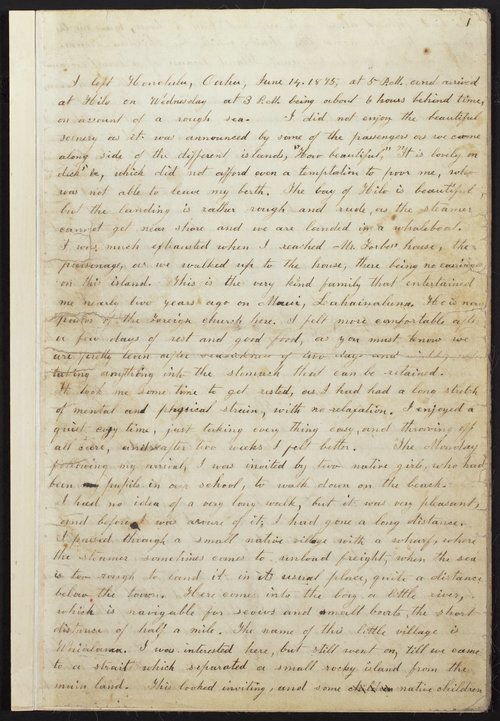 1
I left Honolulu, Oahu, June 14, 1875, at 5 P.M. and arrived
at Hilo on Wednesday at 3 P.M. being about 6 hours behind time,
on account of a rough sea. I did not enjoy the beautiful
scenery as it was announced by some of the passengers as we came
along side of the different islands, "How beautiful," "It is lovely on
deck" &c, which did not afford even a temptation to poor me, who
was not able to leave my berth. The bay of Hilo is beautiful
but the landing is rather rough and rude, as the steamer
cannot get near shore and we are landed in a whaleboat.
I was much exhausted when I reached Mr. Forbes' house, the
parsonage, as we walked up to the house, there being no carriages
on this island. This is the very kind family that entertained
me nearly two years ago on Maui, Lahainaluna. He is now
pastor of the Foreign church here. I felt more comfortable after
a few days of rest and good food, as you must know we
are pretty lean after seasickness of two days and
taking anything into the stomach that can be retained.
It took me some time to get rested, as I had had a long stretch
of mental and physical strain, with no relaxation. I enjoyed a
quiet cosy time, just taking every thing easy, and throwing off
all care, and after two weeks I felt better. The Monday
following my arrival, I was invited by two native girls, who had
been pupils in our school, to walk down on the beach.
I had no idea of a very long walk, but it was very pleasant,
and before I was aware of it, I had gone a long distance.
I passed through a small native village with a wharf, where
the steamer sometimes comes to unload freight, when the sea
is too rough to land it in its usual place, quite a distance
below the town. Here comes into the bay a little river,
which is navigable for scows and small boats, the short
distance of half a mile. The name of this little village is
Waialama. I was interested here, but still went on, till we came
to a strait which separated a small rocky island from the
main land. This looked inviting, and some native children